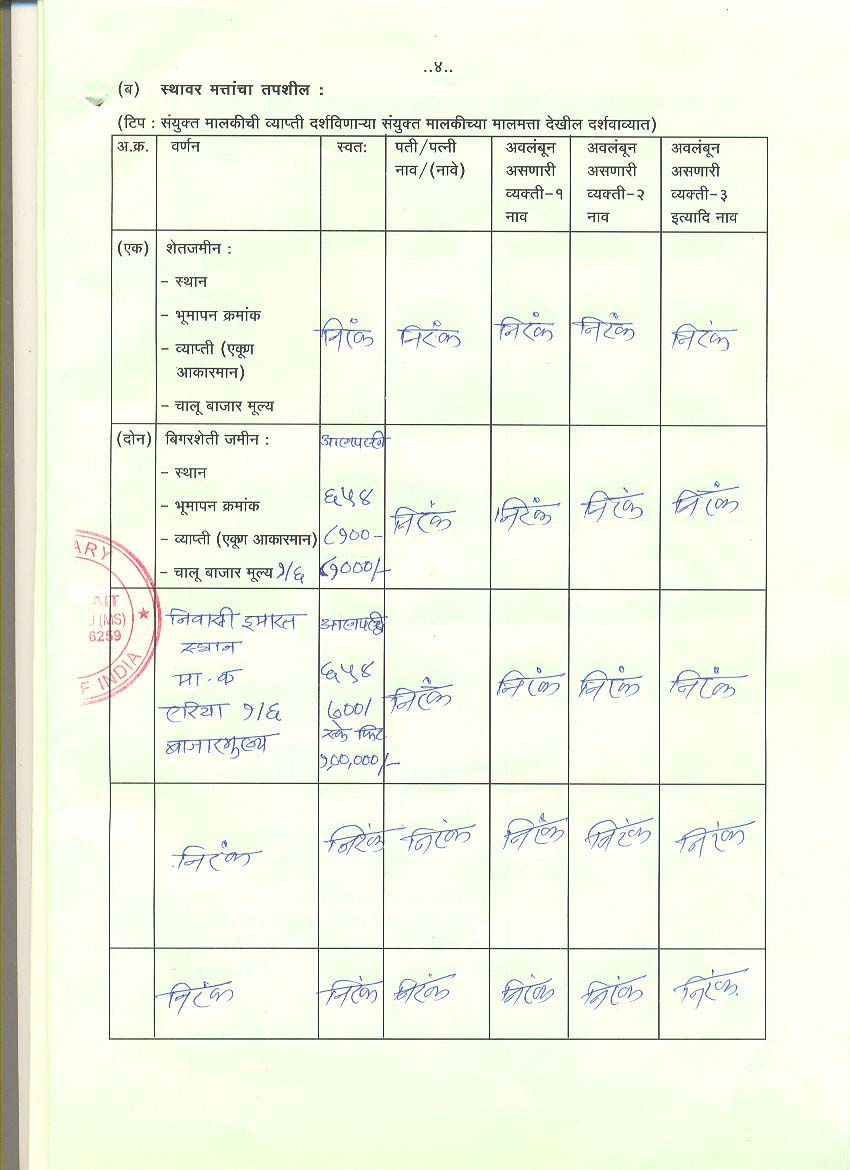 ..४..
(ब) स्थावर मत्तांचा तपशील :
(टिप : संयुक्त मालकीची व्याप्ती दर्शविणाऱ्या संयुक्त मालकीच्या मालमत्ता देखील दर्शवाव्यात)
अ.क्र. वर्णन स्वत: पती/पत्नी अवलंबून अवलंबून अवलंबून
नाव/(नावे) असणारी असणारी असणारी
व्यक्ती-१ व्यक्ती-२ व्यक्ती-३
नाव नाव इत्यादि नाव
(एक) शेतजमीन :
- स्थान
- भूमापन क्रमांक
निरंक निरंक निरंक निरंक निरंक
- व्याप्ती (एकूण
आकारमान)
- चालू बाजार मूल्य
(दोन) बिगरशेती जमीन :
- स्थान
- भूमापन क्रमांक ६५४
निरंक निरंक निरंक निरंक
- व्याप्ती (एकूण आकारमान)
- चालू बाजार मूल्य १/६
ARY
(MS)
6259
OF INDIA
निवासी इमारत
स्थान
मा.क ६५४
निरंक निरंक निरंक निरंक
एरिया १/६
बाजारमुल्य
निरंक निरंक निरंक निरंक निरंक निरंक
निरंक निरंक निरंक निरंक निरंक निरंक